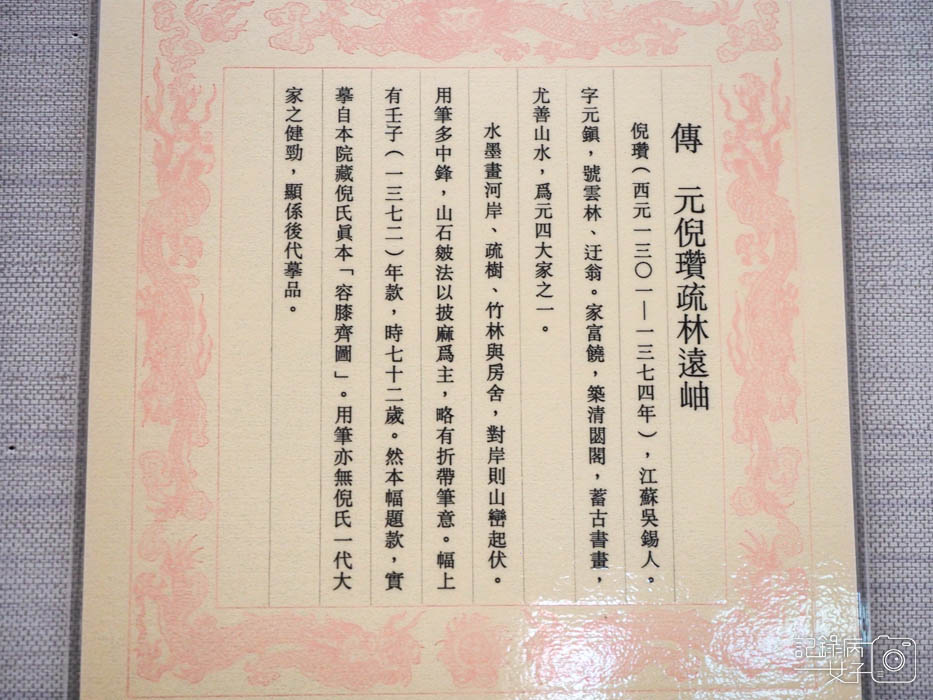 傳　元倪瓚疏林遠岫
倪瓚（西元一三〇一—一三七四年），江蘇吳錫人。
字元鎮，號雲林、迂翁。家富饒，築清閟閣，蓄古書畫，
尤善山水，爲元四大家之一。
水墨畫河岸、疏樹、竹林與房舍，對岸則山巒起伏。
用筆多中鋒，山石皴法以披麻爲主，略有折帶筆意。幅上
有壬子（一三七二）年款，時七十二歲。然本幅題款，實
摹自本院藏倪氏眞本「容膝齊圖」。用筆亦無倪氏一代大
家之健勁，顯係後代摹品。
記錄病
女子